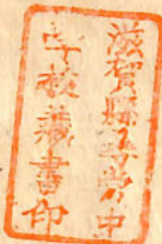 滋賀縣尋常中
学校藏書印